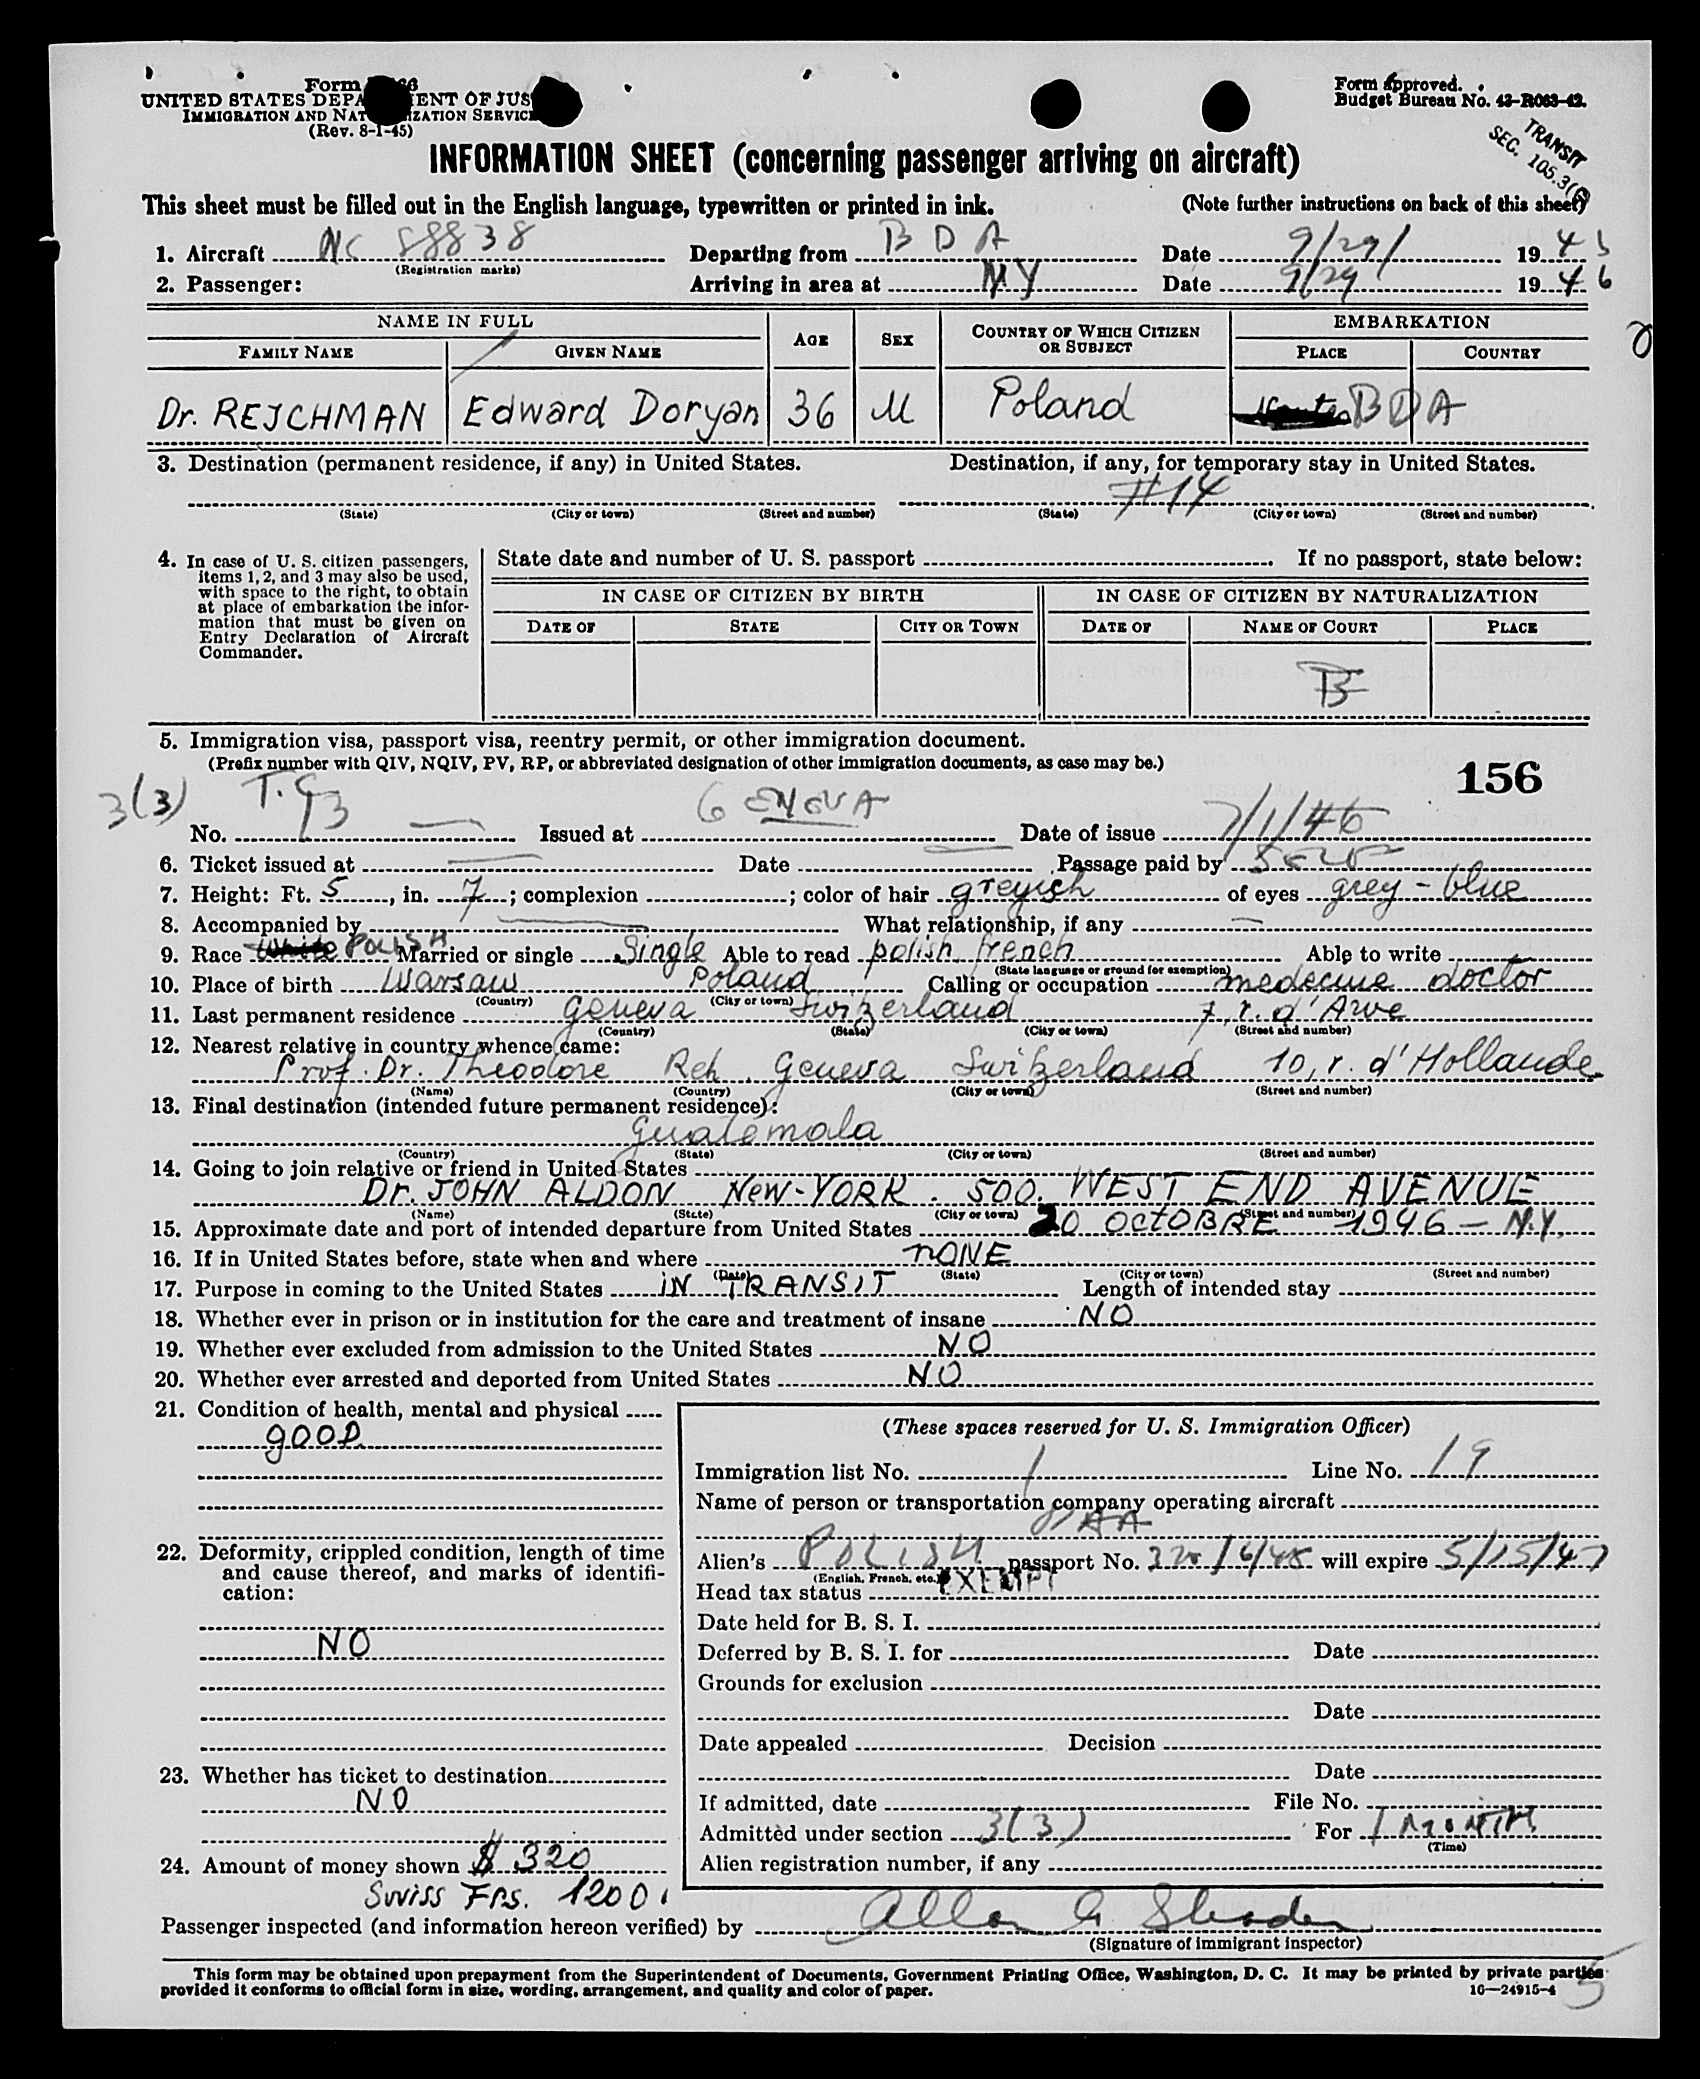 Form
UNITED STATES DEPA ENT OF JUS
IMMIGRATION AND NAT IZATION SERVIC
(Rev. 8-1-45)
Form approved.
Budget Bureau No. 43-R063-42.
TRANSIT
SEC. 105.3(
INFORMATION SHEET (concerning passenger arriving on aircraft)
This sheet must be filled out in the English language, typewritten or printed in ink. (Note further instructions on back of this sheet)
1. Aircraft NC 88838 Departing from BDA Date 9/29/ 19 4
(Registration marks)
2. Passenger: Arriving in area at NY Date 9/29 19 46
NAME IN FULL AGE SEX COUNTRY OF WHICH CITIZEN OR SUBJECT EMBARKATION
FAMILY NAME GIVEN NAME PLACE COUNTRY
Dr. REJCHMAN Edward Doryan 36 M Poland BDA
3. Destination (permanent residence, if any) in United States. Destination, if any, for temporary stay in United States.
#14
(State) (City or town) (Street and number) (State) (City or town) (Street and number)
4. In case of U. S. citizen passengers, items 1, 2, and 3 may also be used, with space to the right, to obtain at place of embarkation the information that must be given on Entry Declaration of Aircraft Commander.
State date and number of U. S. passport If no passport, state below:
IN CASE OF CITIZEN BY BIRTH IN CASE OF CITIZEN BY NATURALIZATION
DATE OF STATE CITY OR TOWN DATE OF NAME OF COURT PLACE
B
5. Immigration visa, passport visa, reentry permit, or other immigration document.
(Prefix number with QIV, NQIV, PV, RP, or abbreviated designation of other immigration documents, as case may be.)
156
3(3) T.C. GENEVA 7/1/46
No. Issued at Date of issue
6. Ticket issued at Date Passage paid by Self
7. Height: Ft. 5, in. 7; complexion ; color of hair greyish of eyes grey - blue
8. Accompanied by What relationship, if any
9. Race POLISH Married or single Single Able to read polish french Able to write
(State language or ground for exemption)
10. Place of birth Warsaw Poland Calling or occupation medecine doctor
(Country) (City or town)
11. Last permanent residence Geneva Switzerland 7, r. d'Arve
(Country) (State) (City or town) (Street and number)
12. Nearest relative in country whence came:
Prof. Dr. Theodore Reh. Geneva Switzerland 10, r. d'Hollande
(Name) (Country) (City or town) (Street and number)
13. Final destination (intended future permanent residence):
Guatemala
(Country) (State) (City or town) (Street and number)
14. Going to join relative or friend in United States
Dr. JOHN ALDON NEW-YORK. 500. WEST END AVENUE
(Name) (State) (City or town) (Street and number)
15. Approximate date and port of intended departure from United States 20 OCTOBRE 1946 - N.Y.
16. If in United States before, state when and where NONE
(Date) (State) (City or town) (Street and number)
17. Purpose in coming to the United States IN TRANSIT Length of intended stay
18. Whether ever in prison or in institution for the care and treatment of insane NO
19. Whether ever excluded from admission to the United States NO
20. Whether ever arrested and deported from United States NO
21. Condition of health, mental and physical
good.
22. Deformity, crippled condition, length of time and cause thereof, and marks of identification:
NO
23. Whether has ticket to destination
NO
24. Amount of money shown $ 320
Swiss Frs. 1200.
(These spaces reserved for U. S. Immigration Officer)
Immigration list No. 1 Line No. 19
Name of person or transportation company operating aircraft
PAA
Alien's POLISH passport No. will expire 5/15/47
(English, French, etc.)
Head tax status EXEMPT
Date held for B. S. I.
Deferred by B. S. I. for Date
Grounds for exclusion
Date
Date appealed Decision
Date
If admitted, date File No.
Admitted under section 3(3) For 1 MONTH
(Time)
Alien registration number, if any
Passenger inspected (and information hereon verified) by
(Signature of immigrant inspector)
This form may be obtained upon prepayment from the Superintendent of Documents, Government Printing Office, Washington, D. C. It may be printed by private parties
provided it conforms to official form in size, wording, arrangement, and quality and color of paper. 16—24915-4